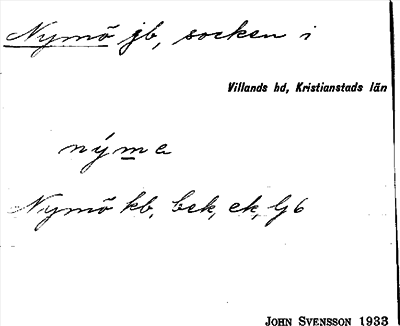 Nymö jb, socken i
Villands hd, Kristianstads län
nýme
Nymö kb, bek, ek, Gb
JOHN SVENSSON 1933